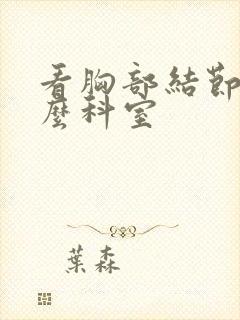 看胸部結節
麼科室
葉森